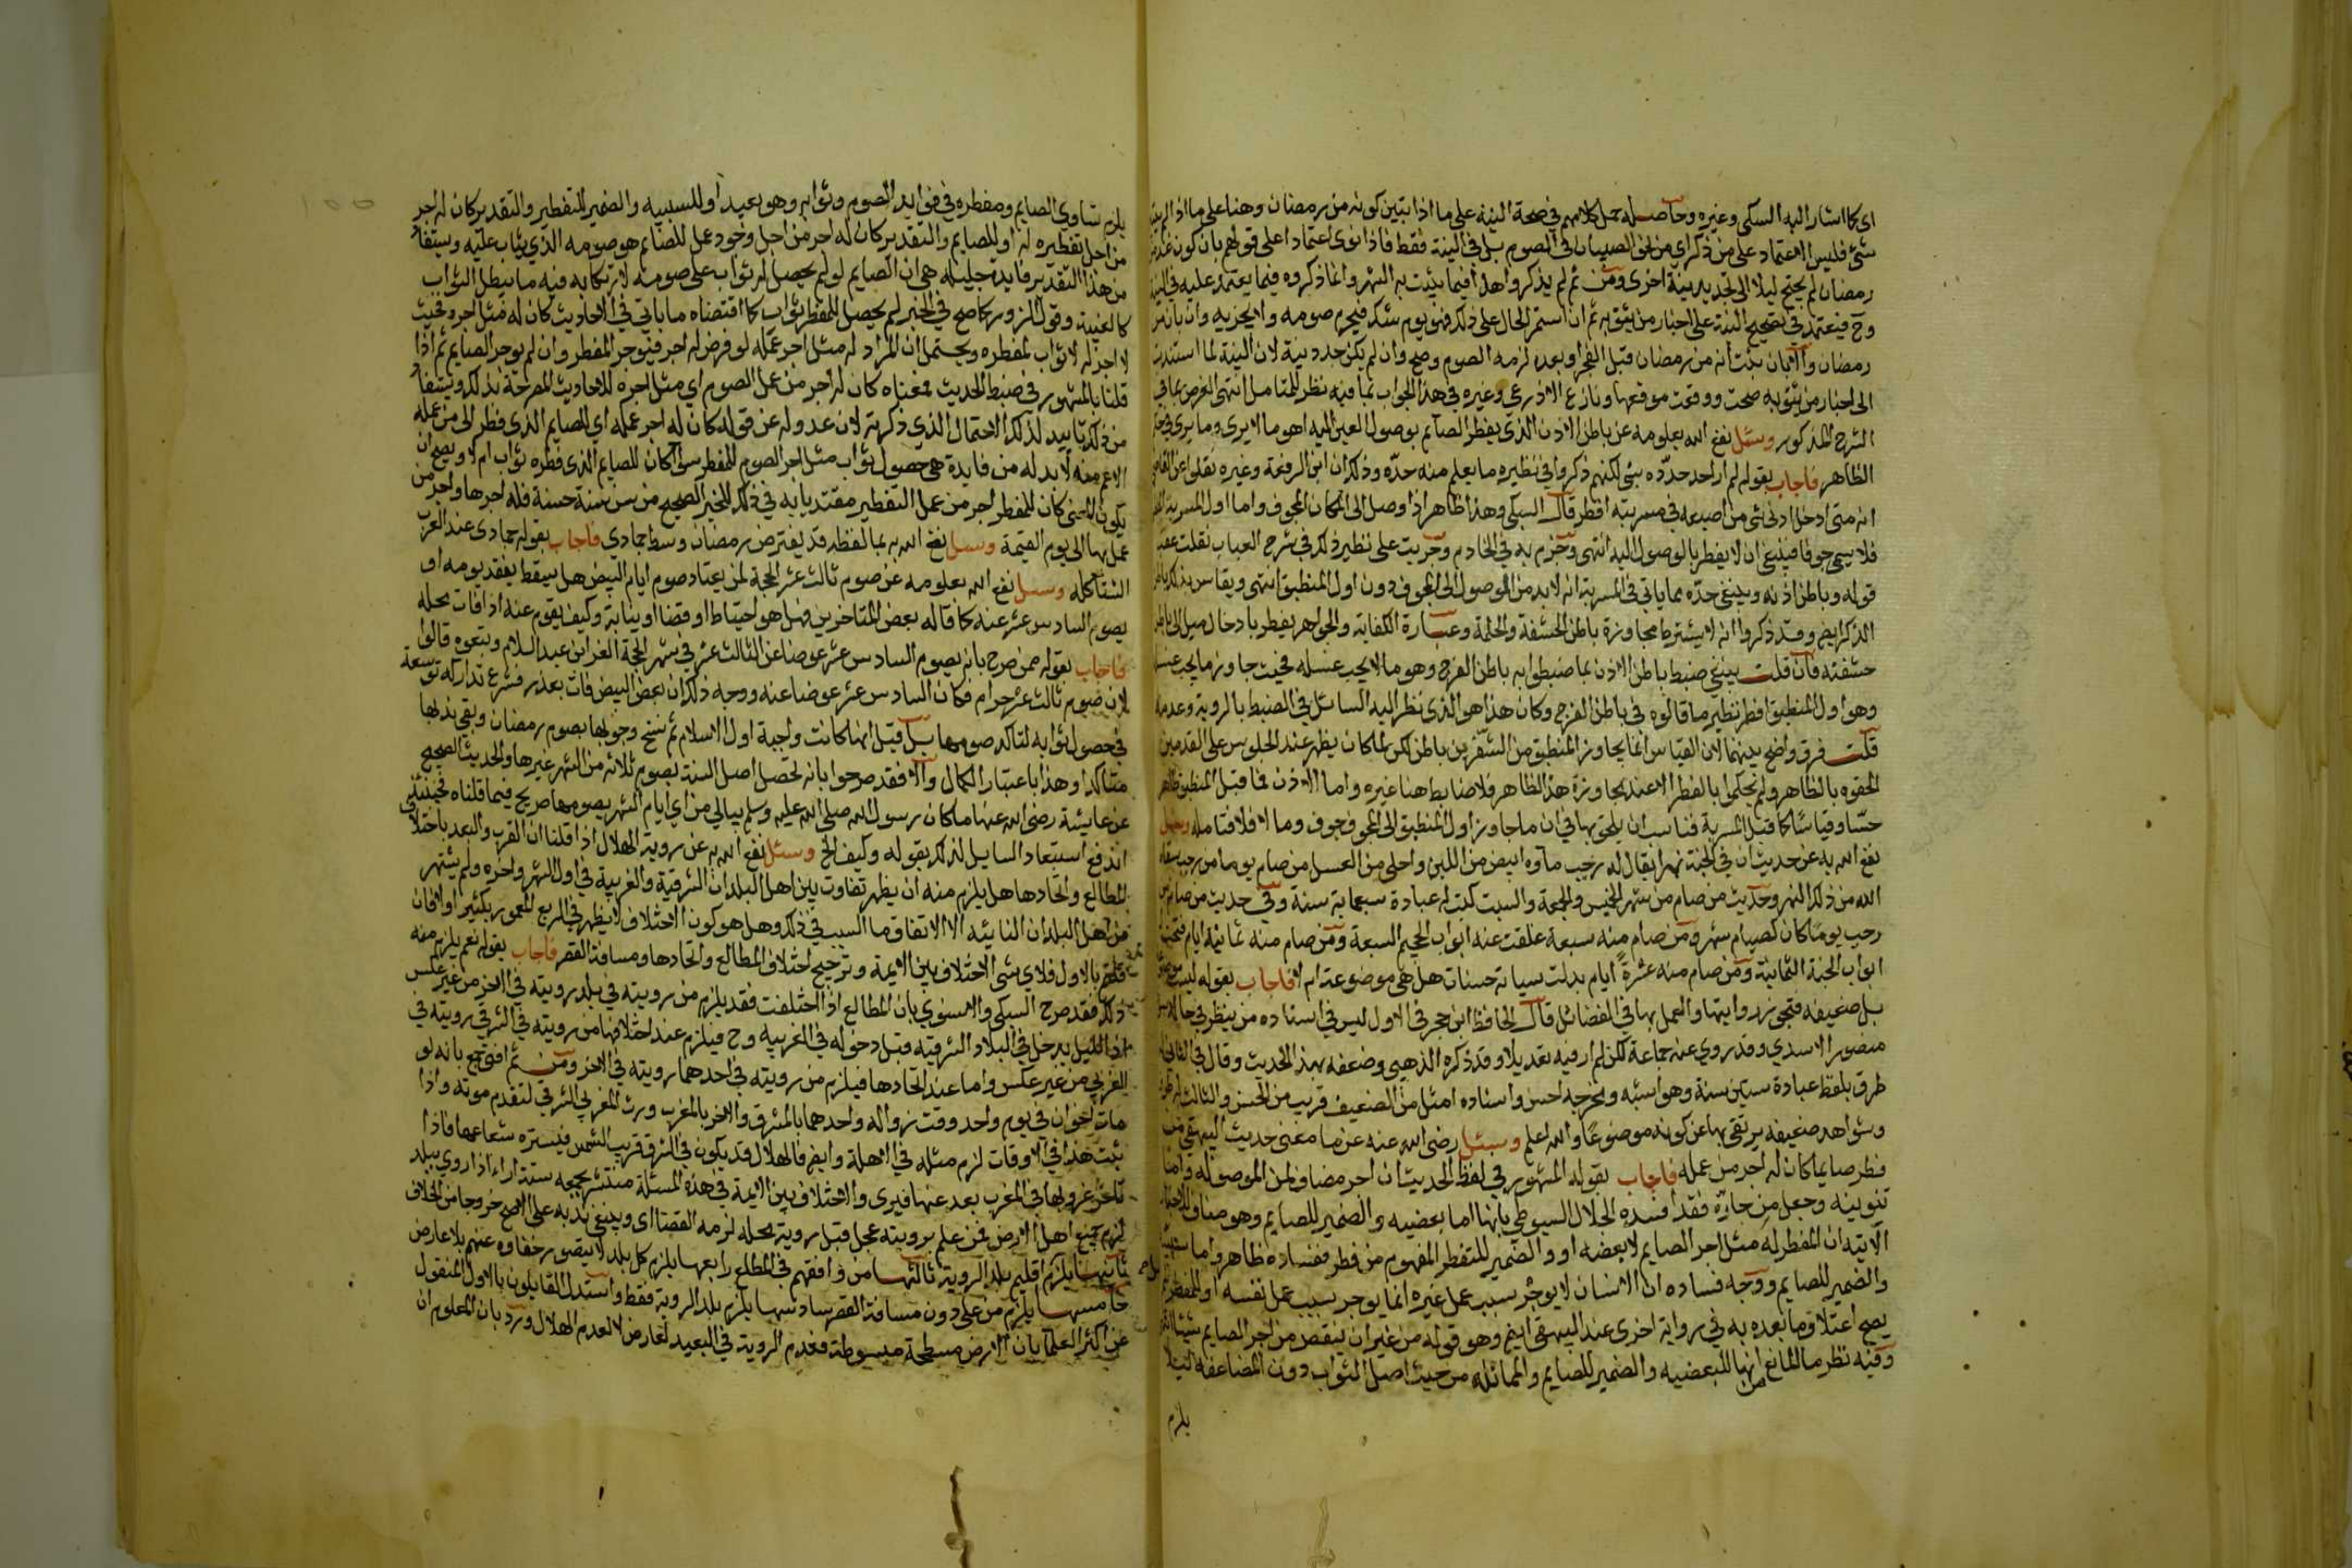 اي كما اشار اليه السبكي وغيره وحاصله حمل كلامهم في صحة النية على ما اذا تبين كونه من رمضان وهنا على ما اذا لم يتبين
شئ فليس الاعتماد على من ذكر اي من نحو الصبيان في الصوم بل في النية فقط فاذا نوى اعتمادا على قولهم بان كون غد من
رمضان لم يحتج ليلا الى تجديد نية اخرى ومن ثم لم يذكروا هذا فيما يثبت به الشهر وانما ذكروه فيما يعتمد عليه في النية
وح فيعتمد في تصحيح النية على اخبار من يثق به ثم ان استمر الحال على ذلك فهو يوم شك فيحرم صومه ولا يجزيه وان بان من
رمضان والا بان بثت انه من رمضان قبل الفجر او بعده لزمه الصوم وصح وان لم يكن جدد نية لان النية لما استندت
الى اخبار من يثق به صحت ووقعت موقعها ونازع الاذرعي وغيره في هذا الجواب بما فيه نظر للمتامل انتهى الغرض بما في
الشرح المذكور وسئل نفع الله بعلومه عن باطن الاذن الذي يفطر الصايم بوصول العين اليه اهو ما لا يرى وما يرى في حكم
الظاهر فاجاب بقوله لم ار احد حدّده بشئ لكنهم ذكروا في نظيره ما يعلم منه حدّه وذلك ان ابن الرفعة وغيره نقلوا عن القاضي
انه متى ادخل ادنى شئ من اصبعه في مسربته افطر قال السبكي وهذا ظاهر اذا وصل الى المكان المجوف واما اول المسربة
فلا يسمى جوفا فينبغي ان لا يفطر بالوصول اليه انتهى وجزم به في الخادم وجريت على نظير ذلك في شرح العباب فقلت عقب
قوله وباطن اذنه وينبغي حدّه بما ياتي في المسربة انه لا بد من الوصول الى المجوف دون اول المنطبق انتهى ويقاس بذلك باطن
الذكر ايضا وقد ذكروا انه لا يشترط مجاوزة باطن الحشفة والحلمة وعبارة الكفاية والجواهر يفطر بادخال ميل الى باطن
حشفته فان قلت ينبغي ضبط باطن الاذن بما ضبطوا به باطن الفرج وهو ما لا يجب غسله فحيث جاوز ما يجب غسله
وهو اول المنطبق افطر نظير ما قالوه في باطن الفرج وكان هذا هو الذي نظر اليه السائل في الضبط بالروية وعدمها
قلت فرق واضح بينهما لان القياس انما يجاوز المنطبق من الشفرين باطن لكن لما كان يظهر عند الجلوس على القدمين
الحقوه بالظاهر ولم يحكموا بالفطر الا عند مجاوزة هذا الظاهر فلا ضابط هنا غيره واما الاذن فما قبل المنطبق ظاهر
حسّا وقياسًا كما قبل المسربة فناسب ان يلحق بها في ان ما جاوز اول المنطبق الى المجوف جوف وما لا فلا فتامله وسئل
نفع الله به عن حديث ان في الجنة نهرا يقال له رجب ماؤه ابيض من اللبن واحلى من العسل من صام يوما من رجب سقاه
الله من ذلك النهر وحديث من صام من شهر الخميس والجمعة والسبت كتب له عبادة سبعماية سنة وفي حديث من صام من
رجب يومًا كان كصيام شهر ومن صام منه سبعة غلقت عنه ابواب الجحيم السبعة ومن صام منه ثمانية ايام فتحت
ابواب الجنة الثمانية ومن صام منه عشرة ايام بدلت سياته حسنات هل هي موضوعة ام لا فاجاب بقوله ليست موضوعة
بل ضعيفة فتجوز روايتها والعمل بها في الفضائل قال الحافظ ابن حجر في الاول ليس في اسناده من ينظر في حاله سوى
منصور الاسدي وقد روي عنه جماعة لكن لم ار فيه تعديلا وقد ذكره الذهبي وضعفه بهذا الحديث وقال في الثاني له
طرق بلفظ عبادة ستين سنة وهو اشبه ومخرجه احسن واسناده امثل من الضعيف قريب من الحسن والثالث له طرق
وشواهد ضعيفة يرتقي بها عن كونه موضوعًا والله اعلم وسئل رضي الله عنه عن ما معنى حديث البيهقي من
فطر صايما كان له اجر من عمله فاجاب بقوله المشهور في لفظ الحديث ان اجر مضاف لمن الموصولة واما
تنوينه وجعل من جارّة فقد افسده الجلال السيوطي بانها اما بعضيه والضمير للصايم وهو مناف للاحاديث
الآتية ان المفطر له مثل اجر الصايم لا بعضه او والضمير للتفطر المفهوم من فطر ففساده ظاهر واما سببية
والضمير للصايم ووجه فساده ان الانسان لا يوجر بسبب عمل غيره انما يوجر بسبب عمل نفسه او للمفطر لم
يصح اعتلاق ما بعده به في رواية اخرى عند البيهقي ايضا وهو قوله من غير ان ينقص من اجر الصايم شيئا انتهى
وفيه نظر ما المانع من انها للبعضيه والضمير للصايم والمماثلة من حيث اصل الثواب دون المضاعفة لئلا
يلزم
يلزم تساوي الصايم ومفطره في فوايد الصوم وثوابه وهو بعيد او للسببيه والضمير للتفطير والتقدير كان له اجر
من اجل تفطيره له او للصايم والتقدير كان له اجر من اجل وجود عمل للصايم هو صومه الذي يثاب عليه ويستفاد
من هذا التقدير فايدة جليلة هي ان الصايم لو لم يحصل له ثواب على صومه لارتكابه فيه ما يبطل الثواب
كالغيبة وقول الزور كما صح في الخبر لم يحصل للمفطر ثواب كما اقتضاه ما ياتي في الاحاديث كان له مثل اجره فحيث
لا اجر له لا ثواب لمفطره ويحتمل ان المراد له مثل اجر عمله لو فرض له اجر فيوجر المفطر وان لم يوجر الصايم ثم اذا
قلنا بالمشهور في ضبط الحديث فمعناه كان له اجر من عمل الصوم اي مثل اجره للاحاديث المصرحة بذلك ويستفاد
من ذلك تاييد لذلك الاحتمال الذي ذكرته لان عدوله عن قوله كان له اجر عمله اي للصايم الذي فطر الى من عمله
الاعم منه لا بد له من فايدة هي حصول ثواب مثل اجر الصوم للمفطر سواء كان للصايم الذي فطره ثواب ام لا ويصح ان
يكون المعنى كان للمفطر اجر من عمل التفطير مقتديا به في ذلك للخبر الصحيح من سن سنة حسنة فله اجرها واجر من
عمل بها الى يوم القيمة وسئل نفع الله به بما لفظه قد يفترض رمضان وسط جمادي فاجاب بقوله جمادى عند العرب
الشتاء كله وسئل نفع الله بعلومه عن صوم ثالث عشر الحجة لمن يعتاد صوم ايام البيض هل يسقط بفقد يومه او
يصوم السادس عشر عنه كما قاله بعض المتاخرين وهل هو احتياط او قضا او نيابة وكيف يقوم عنه اذا فات محله
فاجاب بقوله ممن صرح بانه يصوم السادس عشر عوضا عن الثالث عشر في شهر الحجة العز ابن عبد السلام وتبعوه قالوا
لان صوم ثالث عشر حرام فكان السادس عشر عوضا عنه ووجه ذلك ان بعض البيض فات بعذر فشرع تداركه توسعة
في حصول ثوابه لتاكد صومها بل قيل انها كانت واجبة اول الاسلام ثم نسخ وجوبها بصوم رمضان وبقي ندبها
متاكدا وهذا باعتبار الكمال والا فقد صرحوا بانه تحصل اصل السنة بصوم ثلاثة من الشهر غيرها والحديث الصحيح
عن عايشة رضي الله عنها ما كان رسول الله صلى الله عليه وسلم يبالي من اي ايام الشهر يصومها صريح فيما قلناه فحينئذ
اندفع استبعاد السايل لذلك بقوله وكيف الخ وسئل نفع الله به عن روية الهلال اذا قلنا ان القرب والبعد باختلاف
المطالع واتحادها هل يلزم منه ان يظهر تفاوت بين اهل البلدان الشرقية والغربية في اول الشهر واخره ولم يشتهر
من اهل البلدان النائية الا الاتفاق وما السبب في ذلك وهل هو كون الاختلاف لا يظهر في الربع المعمور بكثير او لا فان
قلتم بالاول فلاي شئ الاختلاف بين الايمة وترجيح اختلاف المطالع واتحادها ومسافة القصر فاجاب بقوله نعم يلزم منه
ذلك فقد صرح السبكي والاسنوي بان المطالع اذا اختلفت فقد يلزم من رويته في بلد رويته في الاخر من غير عكس
اذ الليل يدخل في البلاد الشرقية قبل دخوله في الغربية وح فيلزم عند اختلافها من رويته في الشرقي رويته في
الغربي من غير عكس واما عند اتحادها فيلزم من رويته في احدهما رويته في الاخر ومن ثم افتى جمع بانه لو
مات اخوان في يوم واحد وقت زواله واحدهما بالمشرق والاخر بالمغرب ورث المغربي الشرقي لتقدم موته واذا
ثبت هذا في الاوقات لزم مثله في الاهلة وايضا فالهلال قد يكون في الشرق قريب الشمس فيستره شعاعها فاذا
تاخر غروبها في المغرب بعد عنها فيرى والاختلاف بين الايمة في هذه المسئلة منتشر يجمعه ستة اراء اذا روي ببلد
لزم جميع اهل الارض فمن علم برويته عجل قبل روية محله لزمه القضا اي وينبغي ندبه على الاصح خروجا من الخلاف
ثانيها يلزم اقليم بلد الروية ثالثها من وافقهم في المطلع رابعها يلزم كل بلد لا يتصور خفاؤه عنهم بلا عارض
خامسها يلزم من على دون مسافة القصر سادسها يلزم بلد الروية فقط واستدل القايلون بالاول المنقول
عن اكثر العلما بان الارض مسطحة مبسوطة فعدم الروية في البعيد لعارض لا لعدم الهلال ورد بان المعلوم ان